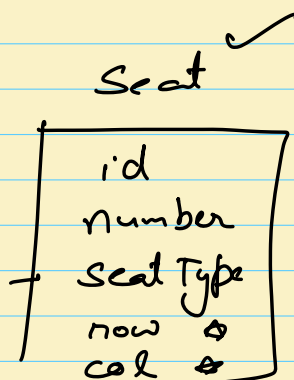 Seat
id
number
seat Type
row ☆
col ☆